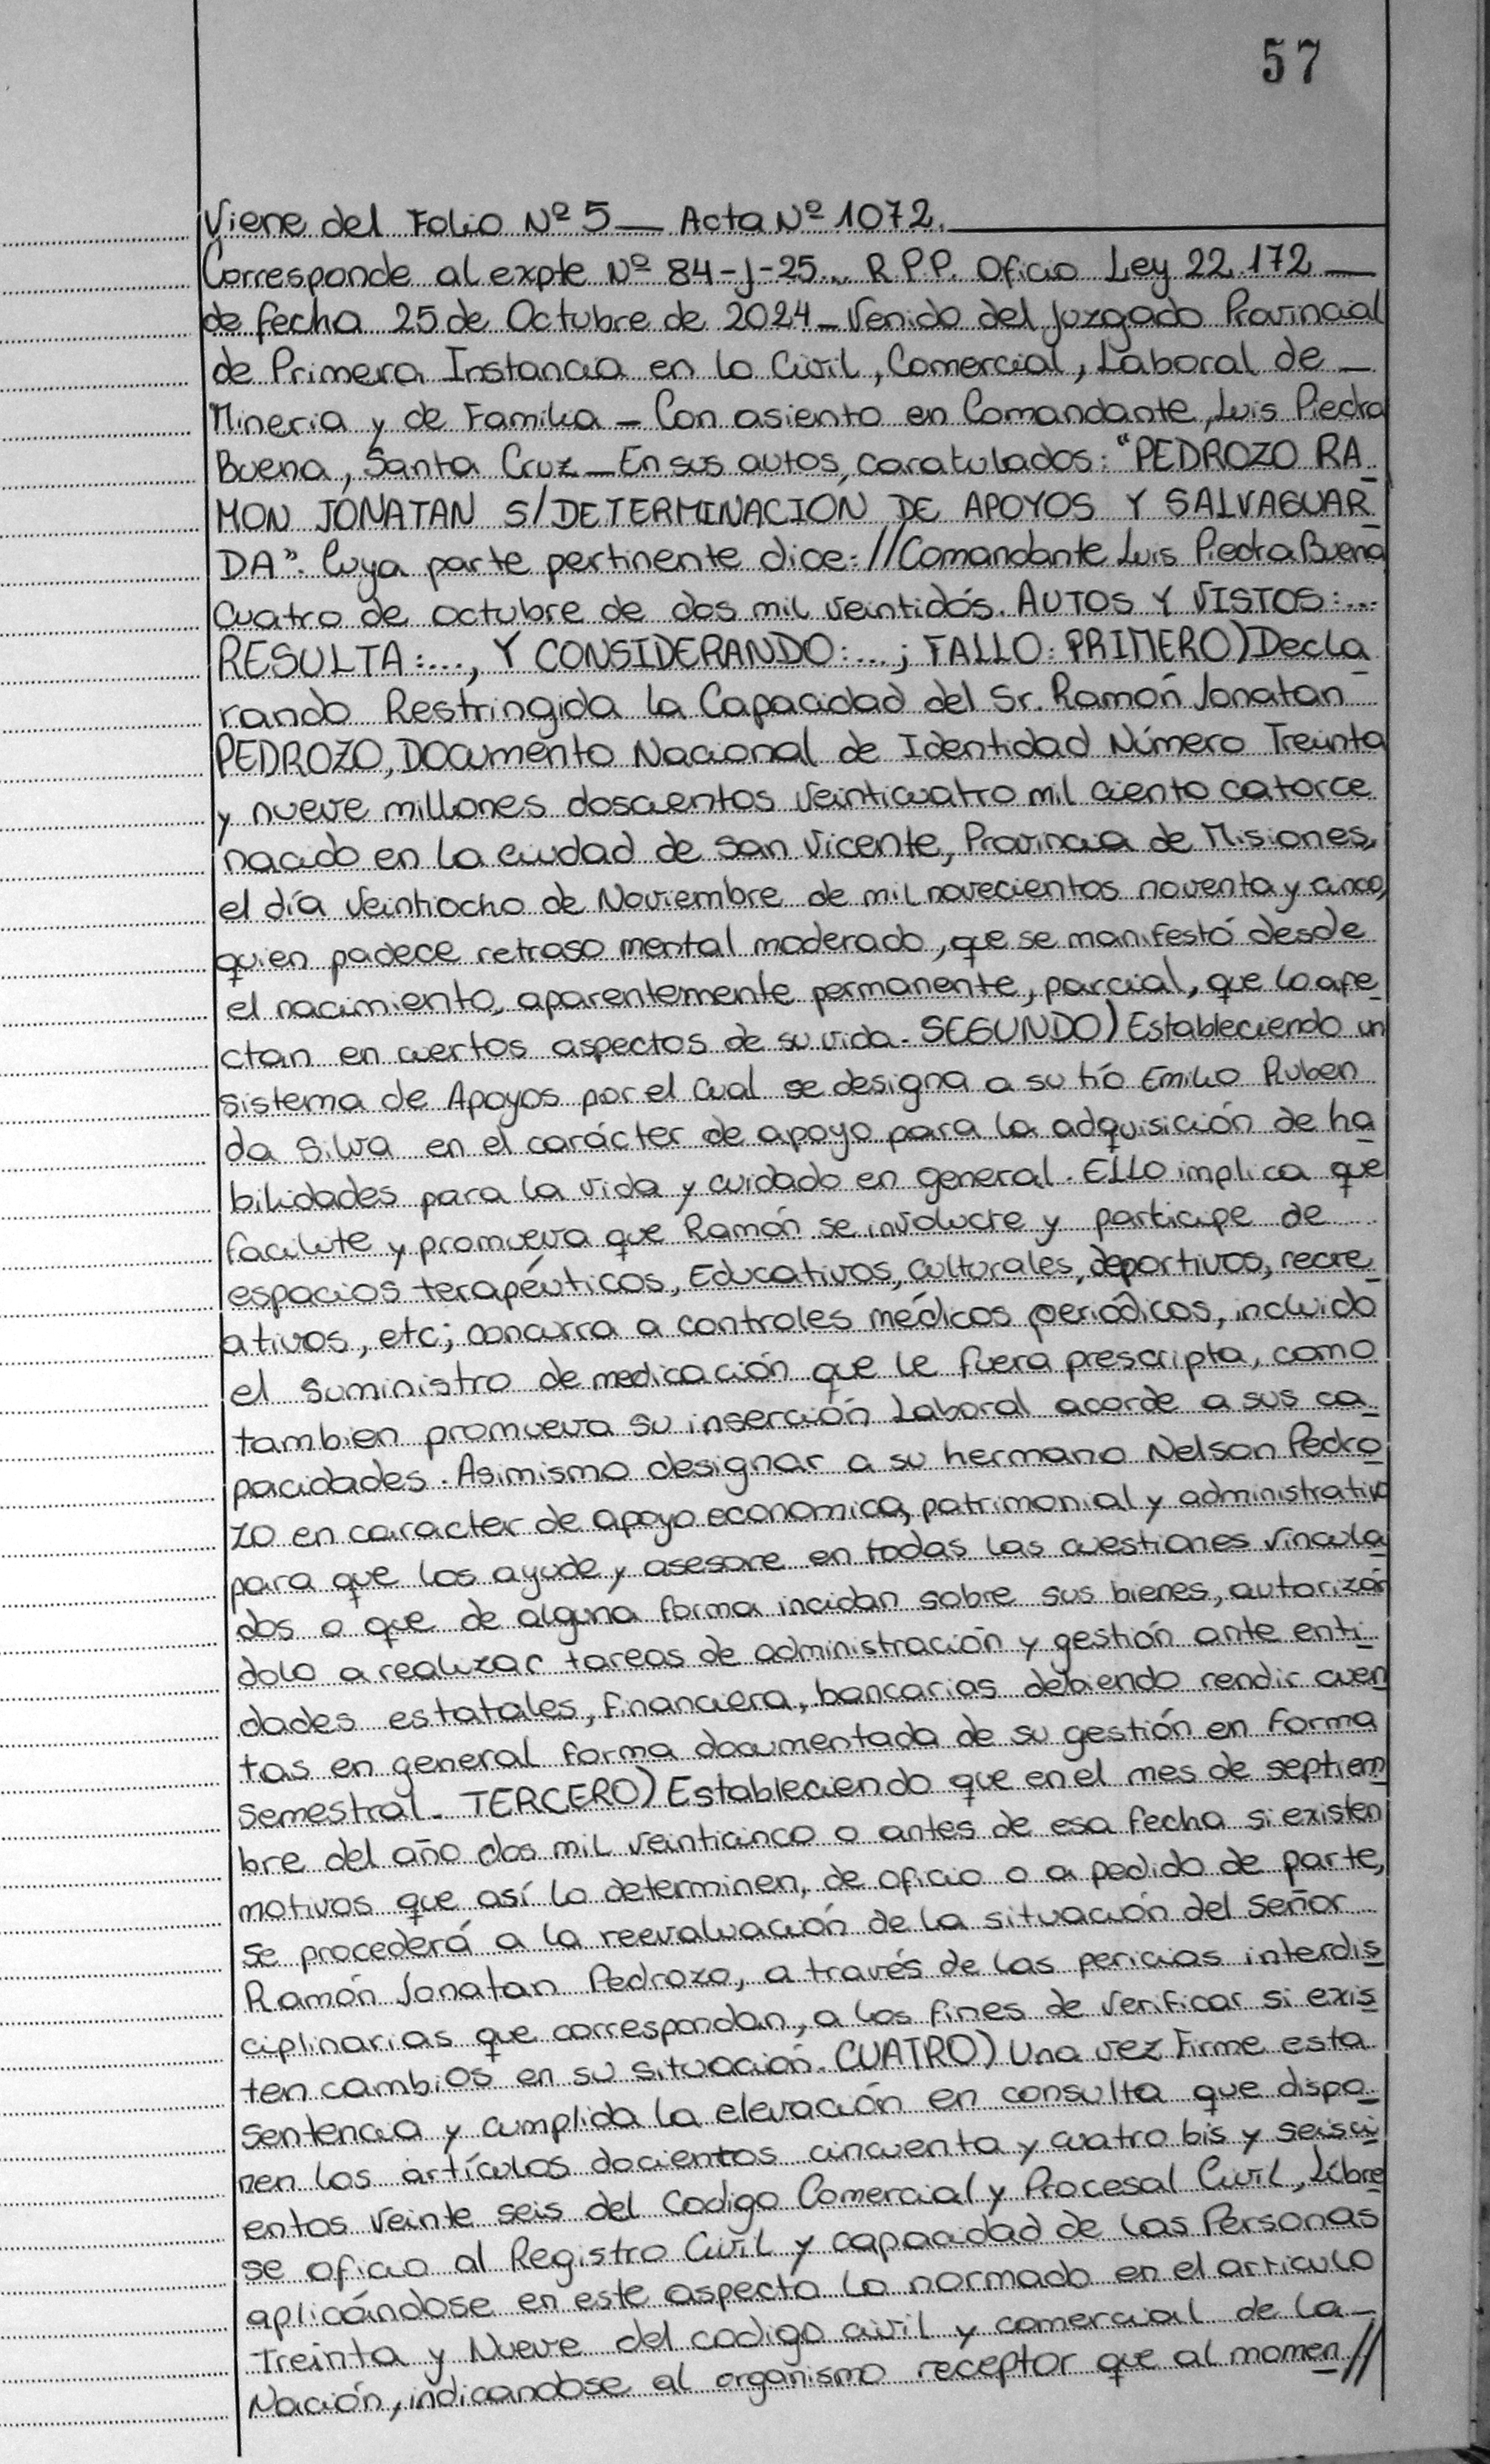 57
Viene del Folio Nº 5 — Acta Nº 1072.
Corresponde al expte Nº 84-J-25... R.P.P. Oficio Ley 22.172 —
de fecha 25 de Octubre de 2024 - Venido del Juzgado Provincial
de Primera Instancia en lo Civil, Comercial, Laboral de —
Mineria y de Familia - Con asiento en Comandante Luis Piedra
Buena, Santa Cruz - En sus autos, caratulados: "PEDROZO RA_
MON JONATAN S/DETERMINACION DE APOYOS Y SALVAGUAR_
DA". Cuya parte pertinente dice: //Comandante Luis Piedra Buena
Cuatro de octubre de dos mil veintidós. AUTOS Y VISTOS:...
RESULTA:..., Y CONSIDERANDO:...; FALLO: PRIMERO) Decla_
rando Restringida la Capacidad del Sr. Ramón Jonatan
PEDROZO, Documento Nacional de Identidad Número Treinta
y nueve millones doscientos veinticuatro mil ciento catorce
nacido en la ciudad de San Vicente, Provincia de Misiones,
el día veintiocho de Noviembre de mil novecientos noventa y cinco,
quien padece retraso mental moderado, que se manifestó desde
el nacimiento, aparentemente permanente, parcial, que lo afe_
ctan en ciertos aspectos de su vida. SEGUNDO) Estableciendo un
sistema de Apoyos por el cual se designa a su tío Emilio Ruben
da Silva en el carácter de apoyo para la adquisición de ha_
bilidades para la vida y cuidado en general. Ello implica que
facilite y promueva que Ramón se involucre y participe de
espacios terapéuticos, Educativos, culturales, deportivos, recre_
ativos, etc; concurra a controles médicos periódicos, incluido
el suministro de medicación que le fuera prescripta, como
tambien promueva su inserción Laboral acorde a sus ca_
pacidades. Asimismo designar a su hermano Nelson Pedro_
zo en caracter de apoyo economico, patrimonial y administrativo
para que los ayude y asesore en todas las cuestiones vincula_
dos o que de alguna forma incidan sobre sus bienes, autorizán_
dolo a realizar tareas de administración y gestión ante enti_
dades estatales, financiera, bancarias debiendo rendir cuen_
tas en general forma documentada de su gestión en forma
semestral. TERCERO) Estableciendo que en el mes de septiem_
bre del año dos mil veinticinco o antes de esa fecha si existen
motivos que así lo determinen, de oficio o a pedido de parte,
se procederá a la reevaluación de la situación del señor
Ramón Jonatan Pedrozo, a través de las pericias interdis_
ciplinarias que correspondan, a los fines de verificar si exis_
ten cambios en su situación. CUATRO) Una vez Firme esta
sentencia y cumplida la elevación en consulta que dispo_
nen los artículos docientos cincuenta y cuatro bis y seisci_
entos veinte seis del Codigo Comercial y Procesal Civil, Líbre_
se oficio al Registro Civil y capacidad de las Personas
aplicándose en este aspecto lo normado en el articulo
Treinta y Nueve del codigo civil y comercial de la —
Nación, indicandose al organismo receptor que al momen_//